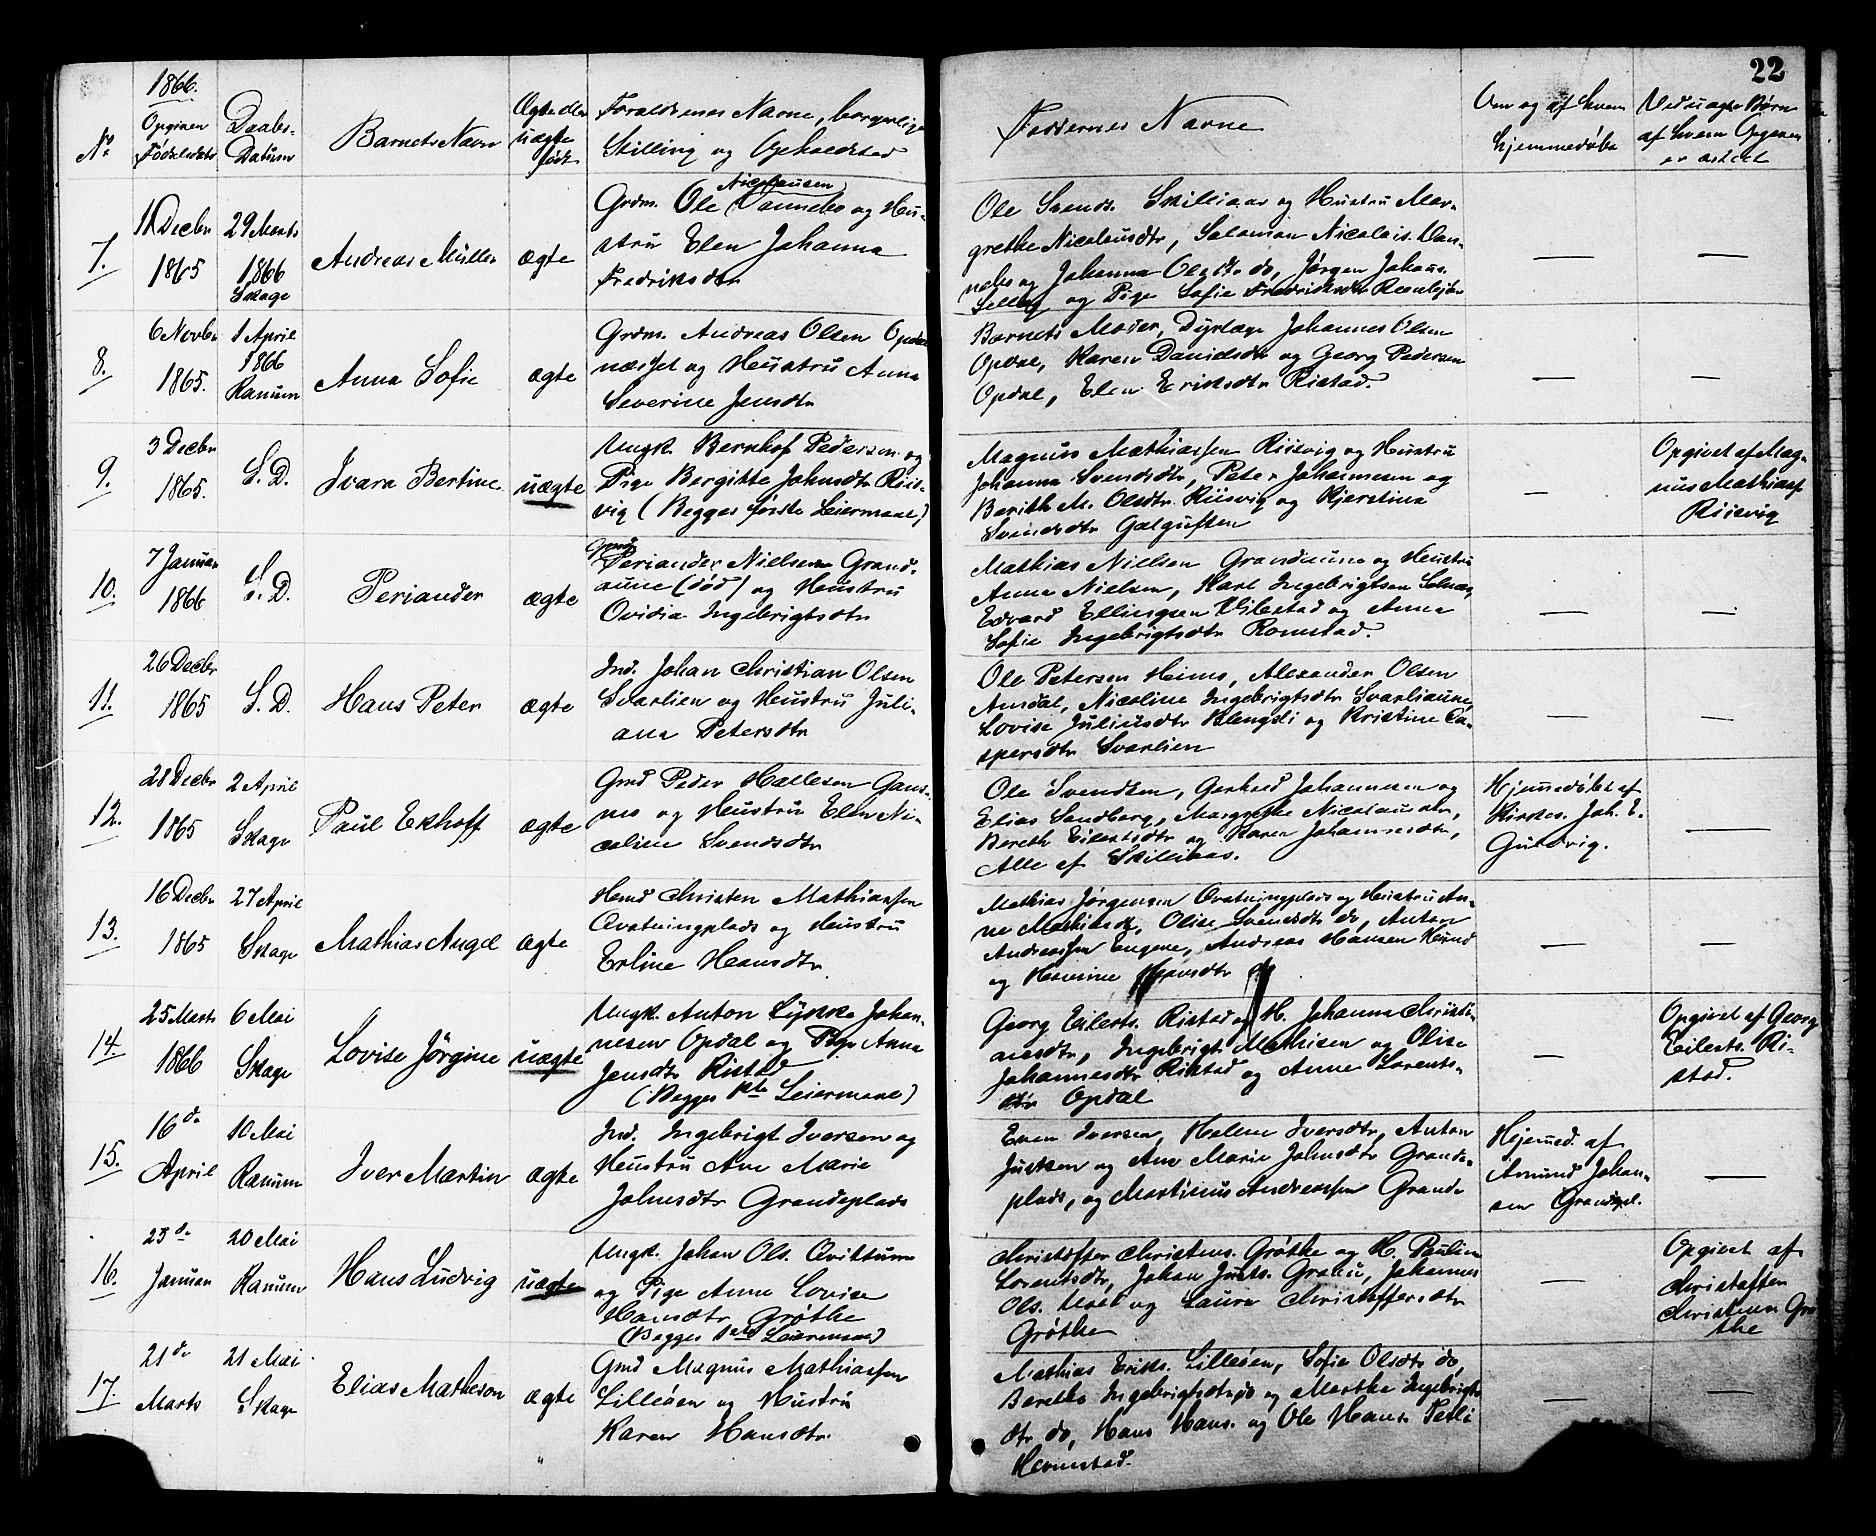 22
1866.
No
Opgiven
Fødselsdato
Daabs-
Datum
Barnets Navn
Ægte eller
uægte
født
Forældrenes Navne, borgerlige
Stilling og Opholdsted
Faddernes Navne
Om og af hvem
hjemmedøbt
Ved uægte Børn
af hvem Opgaven
er astet
7.
11 Decbr
1865
29 Marts
1866
Skage
Andreas Müller
ægte
Nicolausen
Grdm. Ole Vannebo og Hu-
stru Elen Johanna
Fredriksdtr
Ole Svends. Skilliaas og Hustru Mar-
grethe Nicolausdtr, Salamon Nicolais. Van-
nebo og Johanna Olasdtr do, Jørgen Johans.
og Pige Sofie Fredriksdtr
—
—
8.
6 Novbr
1865.
1 April
1866
Ranum
Anna Sofie
ægte
Grdm. Andreas Olsen Opdal
næsset og Hustru Anna
Severine Jensdtr
Barnets Moder, Dyrlæge Johannes Olsen
Opdal, Karen Danielsdtr og Georg Pedersen
Opdal, Elen Eriksdtr Ristad.
—
—
9.
3 Decbr
1865.
S. D.
Ivara Bertine
uægte
Ungk. Bernhof Pedersen og
Pige Bergitte Johnsdtr Riis-
vig (Begges første Leiermaal)
Magnus Mathiassen Riisvig og Hustru
Johanna Svendsdtr, Peter Johannesen og
Berith M. Olsdtr Riisvig og Kjerstina
Svendsdtr Galguften
—
Opgivet af Mag-
nus Mathiass.
Riisvig
10.
7 Januar
1866
S. D.
Periander
ægte
Gmd
Periander Nielsen Grand-
aune (død) og Hustru
Ovidia Ingebrigtsdtr
Mathias Nielsen Grandaune og Hustru
Anna Nielsen, Karl Ingebrigtsen Solnæs,
Edvard Ellingsen Vibstad og Anna
Sofie Ingebrigtsdtr Romstad.
—
—
11.
26 Decbr
1865
S. D.
Hans Peter
ægte
Ind. Johan Christian Olsen
Svarlien og Hustru Juli-
ana Petersdtr
Ole Petersen Heimo, Alexander Olsen
Amdal, Nicoline Ingebrigtsdtr Svarliaune,
Lovise Juliusdtr Klengsli og Kristine Ca-
spersdtr Svarlien
—
—
12.
28 Decbr
1865
2 April
Skage
Paul Ekhoff
ægte
Gmd Peder Hallesen Gans-
mo og Hustru Elen Ni-
coline Svendsdtr
Ole Svendsen, Gerhard Johannesen og
Elias Sandberg, Margrethe Nicolausdtr,
Bereth Eilertsdtr og Karen Johannesdtr,
Alle af Skilliaas.
Hjemmedøbt af
Kirkes. Joh. E.
Gulvig.
—
13.
16 Decbr
1865
27 April
Skage
Mathias Angel
ægte
Hmd Christen Mathiassen
Qvatningplads og Hustru
Erline Hansdtr
Mathias Jørgensen Qvatningplads og Hustru An-
ne Mathiasdtr, Olise Svendsdtr do, Anton
Andreassen Engene, Andreas Hansen Hund
og Hansine Hansdtr do
—
—
14.
25 Marts
1866
6 Mai
Skage
Lovise Jörgine
uægte
Ungk. Anton Lykke Johan-
nesen Opdal og Pige Anna
Jensdtr Ristad
(Begges 1ste Leiermaal)
Georg Eilerts. Ristad og H. Johanna Christi-
ansdtr, Ingebrigt Mathisen og Olise
Johannesdtr Ristad og Anne Lorents-
dtr Opdal
—
Opgivet af Georg
Eilerts. Ri-
stad.
15.
16de
April
10 Mai
Ranum
Iver Martin
ægte
Ind. Ingebrigt Iversen og
Hustru Ane Marie
Johnsdtr Grandeplads
Even Iversen, Helene Iversdtr, Anton
Justsen og Ane Marie Johnsdtr Grande-
plads, og Martinus Andreassen Grande
Hjemmed. af
Amund Johan-
sen Grandepl.
—
16.
23de
Januar
20 Mai
Ranum
Hans Ludvig
uægte
Ungk. Johan Ols. Qvittum
og Pige Anne Lovise
Hansdtr Grøthe
(Begges 1ste Leiermaal)
Christoffer Christens. Grøthe og H. Pauline
Lorentsdtr, Johan Justs. Granu, Johannes
Ols. Moel og Laura Christoffersdtr
Grøthe
—
Opgivet af
Christoffer
Christens. Grø-
the
17.
21de
Marts
21 Mai
Skage
Elias Matheson
ægte
Gmd Magnus Mathiassen
Lilleöen og Hustru
Karen Hansdtr
Mathias Eriks. Lilleöen, Sofie Olsdtr do,
Berethe Ingebrigtsdtr do og Marthe Ingebrigts-
dtr do, Hans Hans. og Ole Hans. Petli
Harmstad.
—
—